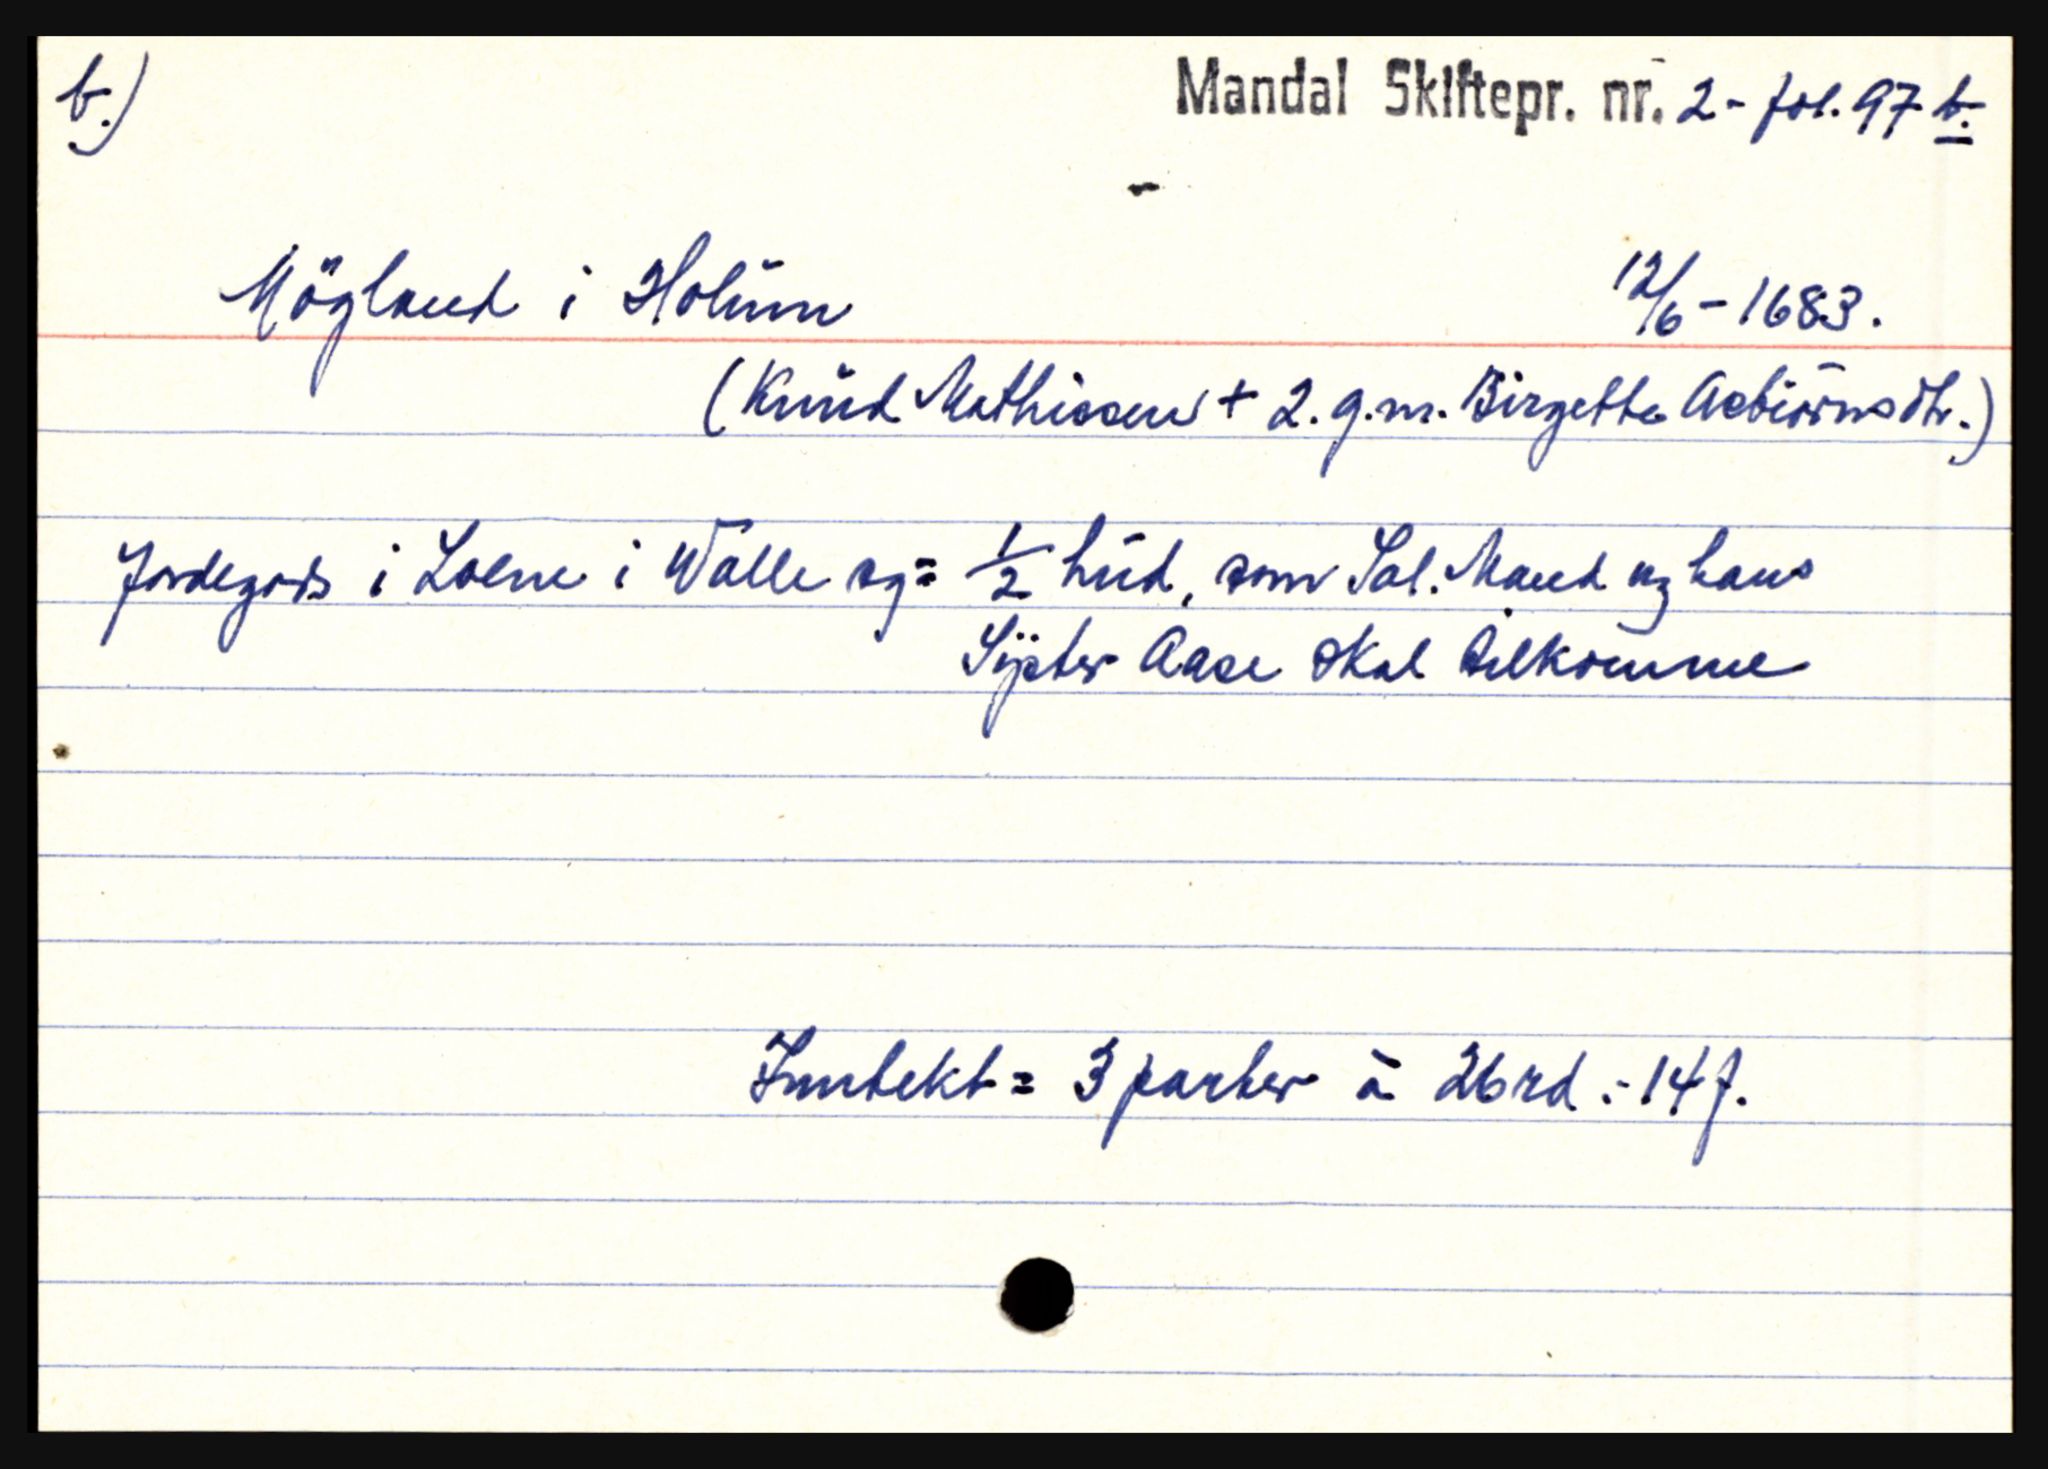 b.)
Mandal Skiftepr. nr. 2 - fol. 97 b.
Mögland i Holum
12/6 - 1683.
(Knud Mathissen + 2. g.m. Birgette Asbiörnsdtr.)
Jordegods i Loene i Walle sg = 1/2 hud, som Sal. Mand og hans
Sÿster Aase skal tilkomme
Inntekt = 3 parter à 26 rd. - 14 f.